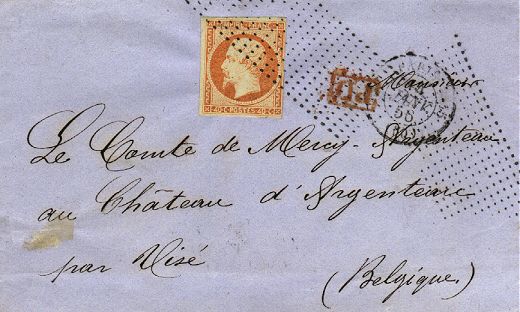 40 · C POSTES 40 · C
P.D.
Monsieur
Le Comte de Mercy-Argenteau
au Château d'Argenteau
par Visé
(Belgique)